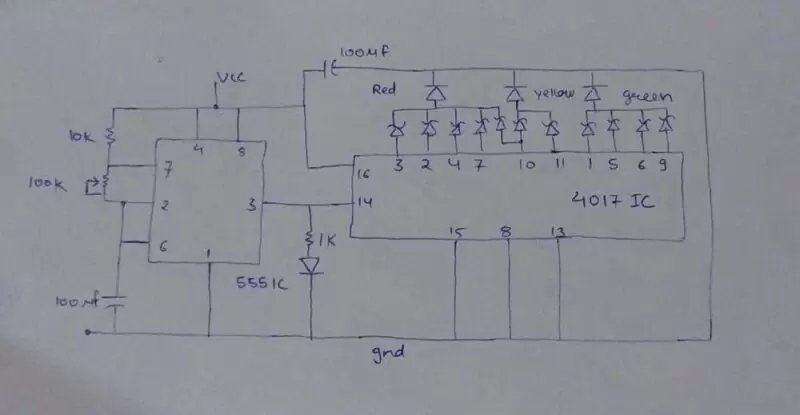 100μf
Vcc
Red
yellow
green
10K
4
8
7
3
2
4
7
10
11
1
5
6
9
16
100K
2
3
14
4017 IC
6
1K
15
8
13
1
555 IC
100μf
gnd